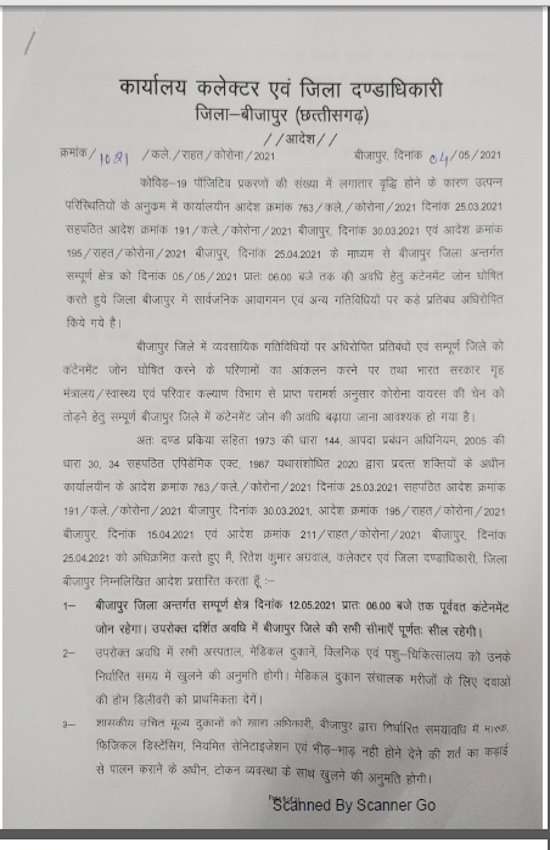 कार्यालय कलेक्टर एवं जिला दण्डाधिकारी
जिला–बीजापुर (छत्तीसगढ़)
//आदेश//
क्रमांक/1081 /कले./राहत/कोरोना/2021 बीजापुर, दिनांक 04/05/2021
कोविड-19 पॉजिटिव प्रकरणों की संख्या में लगातार वृद्धि होने के कारण उत्पन्न
परिस्थितियों के अनुक्रम में कार्यालयीन आदेश क्रमांक 763/कले./कोरोना/2021 दिनांक 25.03.2021
सहपठित आदेश क्रमांक 191/कले./कोरोना/2021 बीजापुर, दिनांक 30.03.2021 एवं आदेश क्रमांक
195/राहत/कोरोना/2021 बीजापुर, दिनांक 25.04.2021 के माध्यम से बीजापुर जिला अन्तर्गत
सम्पूर्ण क्षेत्र को दिनांक 05/05/2021 प्रातः 06.00 बजे तक की अवधि हेतु कंटेनमेंट जोन घोषित
करते हुये जिला बीजापुर में सार्वजनिक आवागमन एवं अन्य गतिविधियों पर कड़े प्रतिबंध अधिरोपित
किये गये है।
बीजापुर जिले में व्यवसायिक गतिविधियों पर अधिरोपित प्रतिबंधों एवं सम्पूर्ण जिले को
कंटेनमेंट जोन घोषित करने के परिणामों का आंकलन करने पर तथा भारत सरकार गृह
मंत्रालय/स्वास्थ्य एवं परिवार कल्याण विभाग से प्राप्त परामर्श अनुसार कोरोना वायरस की चेन को
तोड़ने हेतु सम्पूर्ण बीजापुर जिले में कंटेनमेंट जोन की अवधि बढ़ाया जाना आवश्यक हो गया है।
अतः दण्ड प्रकिया सहिता 1973 की धारा 144, आपदा प्रबंधन अधिनियम, 2005 की
धारा 30, 34 सहपठित एपिडेमिक एक्ट, 1987 यथासंशोधित 2020 द्वारा प्रदत्त शक्तियों के अधीन
कार्यालयीन के आदेश क्रमांक 763/कले./कोरोना/2021 दिनांक 25.03.2021 सहपठित आदेश क्रमांक
191/कले./कोरोना/2021 बीजापुर, दिनांक 30.03.2021, आदेश क्रमांक 195/राहत/कोरोना/2021
बीजापुर, दिनांक 15.04.2021 एवं आदेश क्रमांक 211/राहत/कोरोना/2021 बीजापुर, दिनांक
25.04.2021 को अधिक्रमित करते हुए मैं, रितेश कुमार अग्रवाल, कलेक्टर एवं जिला दण्डाधिकारी, जिला
बीजापुर निम्नलिखित आदेश प्रसारित करता हूँ :–
1– बीजापुर जिला अन्तर्गत सम्पूर्ण क्षेत्र दिनांक 12.05.2021 प्रातः 06.00 बजे तक पूर्ववत कंटेनमेंट
जोन रहेगा। उपरोक्त दर्शित अवधि में बीजापुर जिले की सभी सीमाऐं पूर्णतः सील रहेगी।
2– उपरोक्त अवधि में सभी अस्पताल, मेडिकल दुकानें, क्लिनिक एवं पशु-चिकित्सालय को उनके
निर्धारित समय में खुलने की अनुमति होगी। मेडिकल दुकान संचालक मरीजों के लिए दवाओं
की होम डिलीवरी को प्राथमिकता देगें।
3– शासकीय उचित मूल्य दुकानों को खाद्य अधिकारी, बीजापुर द्वारा निर्धारित समयावधि में मास्क,
फिजिकल डिस्टेंसिग, नियमित सेनिटाइजेशन एवं भीड़-भाड़ नही होने देने की शर्त का कड़ाई
से पालन कराने के अधीन, टोकन व्यवस्था के साथ खुलने की अनुमति होगी।
Scanned By Scanner Go